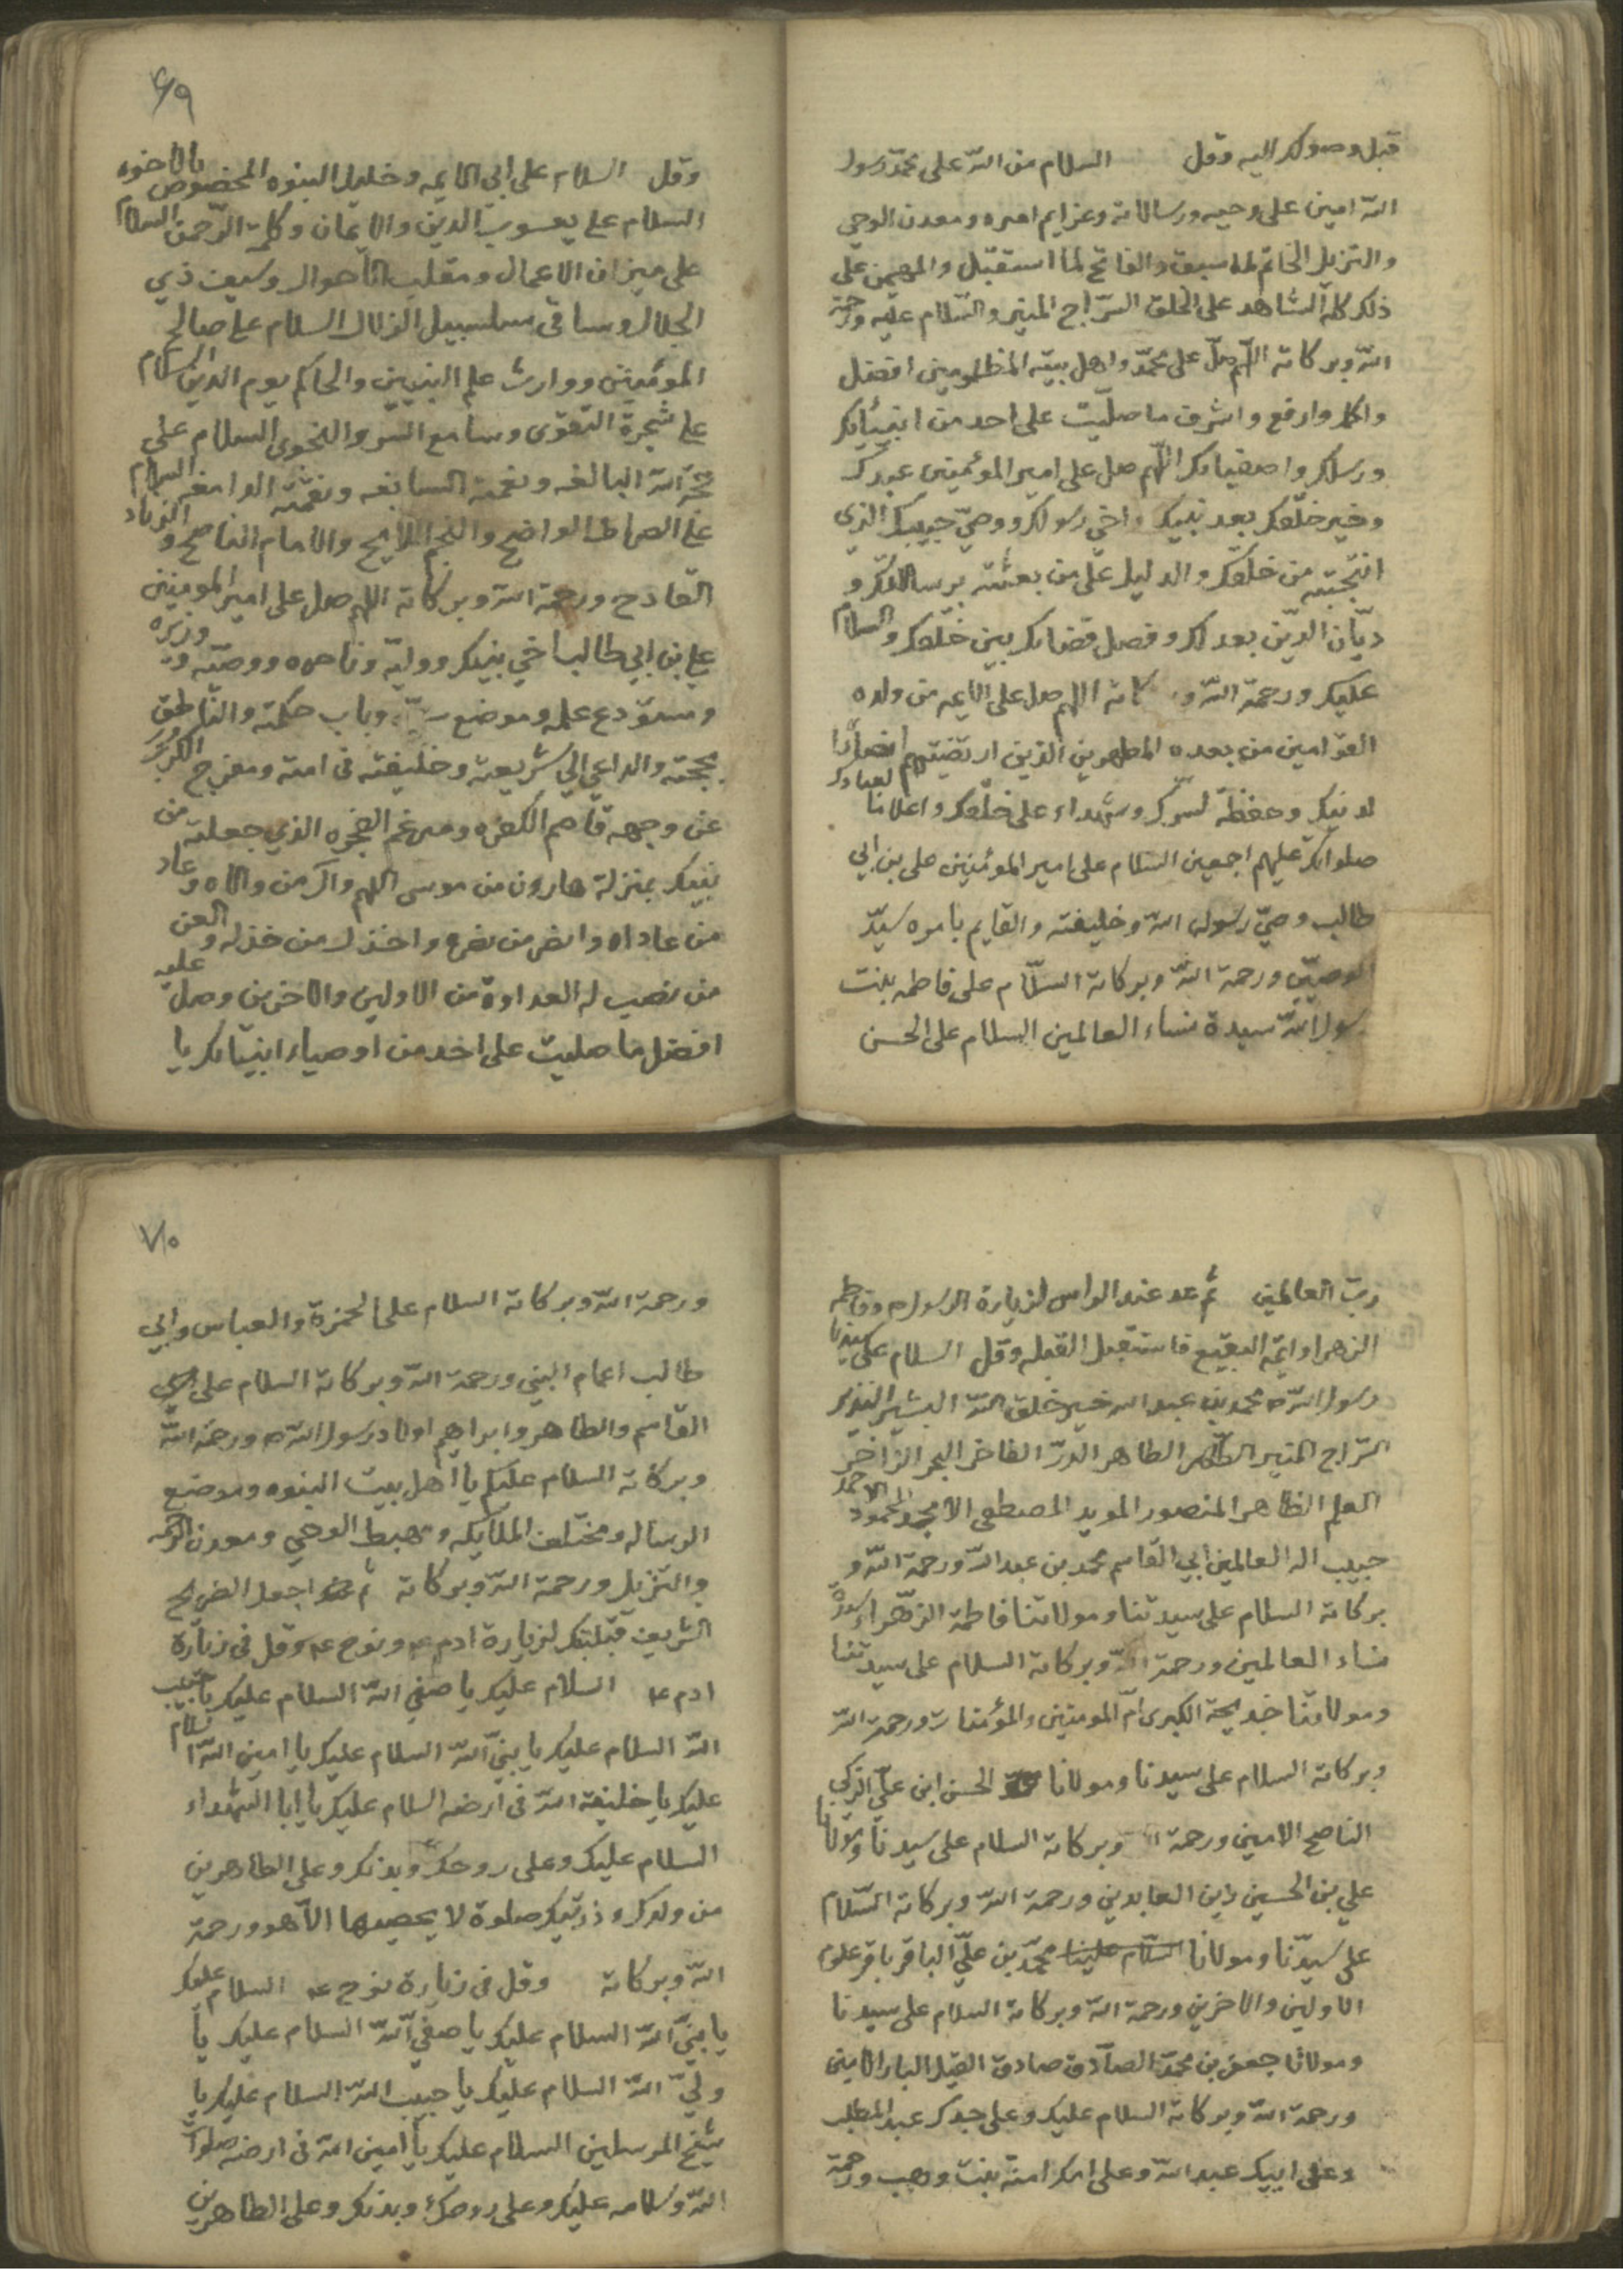 قبل وصولك اليه وقل السلام من الله على محمد رسول
الله امين على وحيه ورسالاته وعزايم امره ومعدن الوحي
والتنزيل الخاتم لما سبق والفاتح لما استقبل والمهيمن على
ذلك كله الشاهد على الخلق السراج المنير والسلام عليه ورحمة
الله وبركاته اللهم صل على محمد واهل بيته المظلومين افضل
واكمل وارفع واشرف ما صليت على احد من انبيائك
ورسلك واصفيائك اللهم صل على امير المؤمنين عبدك
وخير خلقك بعد نبيك واخي رسولك ووصي حبيبك الذي
انتجبته من خلقك والدليل على من بعثته برسالاتك و
ديان الدين بعدلك وفصل قضائك بين خلقك والسلام
عليك ورحمة الله و كاته اللهم صل على الايمه من ولده
القوامين من بعده المطهرين الذين ارتضيتهم انصارا
لدينك وحفظة لسرك وشهداء على خلقك واعلاما لعبادك
صلواتك عليهم اجمعين السلام على امير المؤمنين على بن ابي
طالب وصي رسول الله وخليفته والقايم بامره سيد
الوصيين ورحمة الله وبركاته السلام على فاطمه بنت
رسول الله سيدة نساء العالمين السلام على الحسن
٦٩
وقل السلام على ابي الايمه وخليل النبوه المخصوص بالاخوه
السلام على يعسوب الدين والايمان وكلمة الرحمن السلام
على ميزان الاعمال ومقلب الاحوال وسيف ذي
الجلال وساقي سلسبيل الزلال السلام على صالح
المؤمنين ووارث علم النبيين والحاكم يوم الدين السلام
على شجرة التقوى وسامع السر والنجوى السلام على
حجة الله البالغه ونعمته السابغه ونقمته الدامغه السلام
على الصراط الواضح والنجم اللايح والامام الناصح والزناد
القادح ورحمة الله وبركاته اللهم صل على امير المومنين
علي بن ابي طالب اخي نبيك ووليه وناصره ووصيه ووزيره
ومستودع علمه وموضع سره وباب حكمته والناطق
بحجته والداعي الى شريعته وخليفته في امته ومفرج الكرب
عن وجهه قاصم الكفره ومرغم الفجره الذي جعلته من
نبيك بمنزلة هارون من موسى اللهم وال من والاه وعاد
من عاداه وانصر من نصره واخذل من خذله والعن
من نصب له العداوة من الاولين والاخرين وصل عليه
افضل ما صليت على احد من اوصياء انبيائك يا
رب العالمين ثم عد عند الراس لزيارة الرسول ص وفاطمه
الزهرا وايمة البقيع فاستقبل القبله وقل السلام على سيدنا
رسول الله ص محمد بن عبد الله خير خلق الله البشير النذير
السراج المنير الطهر الطاهر الدر الفاخر البحر الزاخر
العلم الظاهر المنصور المويد المصطفى الامجد المحمود الاحمد
حبيب اله العالمين ابي القاسم محمد بن عبد الله ورحمة الله و
بركاته السلام على سيدتنا ومولاتنا فاطمة الزهراء سيدة
نساء العالمين ورحمة الله وبركاته السلام على سيدتنا
ومولاتنا خديجة الكبرى ام المومنين والمؤمنات ورحمة الله
وبركاته السلام على سيدنا ومولانا الحسن ابن علي الزكي
الناصح الامين ورحمة الله وبركاته السلام على سيدنا ومولانا
علي بن الحسين زين العابدين ورحمة الله وبركاته السلام
على سيدنا ومولانا السلام علينا محمد بن علي الباقر باقر علوم
الاولين والاخرين ورحمة الله وبركاته السلام على سيدنا
ومولانا جعفر بن محمد الصادق صادق القيل البار الامين
ورحمة الله وبركاته السلام عليك وعلى جدك عبد المطلب
وعلى ابيك عبد الله وعلى امك امنة بنت وهب ورحمة
٧٠
ورحمة الله وبركاته السلام على الحمزة والعباس وابي
طالب اعمام النبي ورحمة الله وبركاته السلام على
القاسم والطاهر وابراهيم اولاد رسول الله ص ورحمة الله
وبركاته السلام عليكم يا اهل بيت النبوه وموضع
الرساله ومختلف الملائكه ومهبط الوحي ومعدن الرحمه
والتنزيل ورحمة الله وبركاته ثم اجعل الضريح
الشريف قبلتك لزيارة ادم ع ونوح ع وقل في زيارة
ادم ع السلام عليك يا صفي الله السلام عليك يا حبيب
الله السلام عليك يا نبي الله السلام عليك يا امين الله السلام
عليك يا خليفة الله في ارضه السلام عليك يا ابا الشهداء
السلام عليك وعلى روحك وبدنك وعلى الطاهرين
من ولدك وذريتك صلوة لا يحصيها الا هو ورحمة
الله وبركاته وقل في زيارة نوح ع السلام عليك
يا نبي الله السلام عليك يا صفي الله السلام عليك يا
ولي الله السلام عليك يا حبيب الله السلام عليك يا
شيخ المرسلين السلام عليك يا امين الله في ارضه صلوات
الله وسلامه عليك وعلى روحك وبدنك وعلى الطاهرين